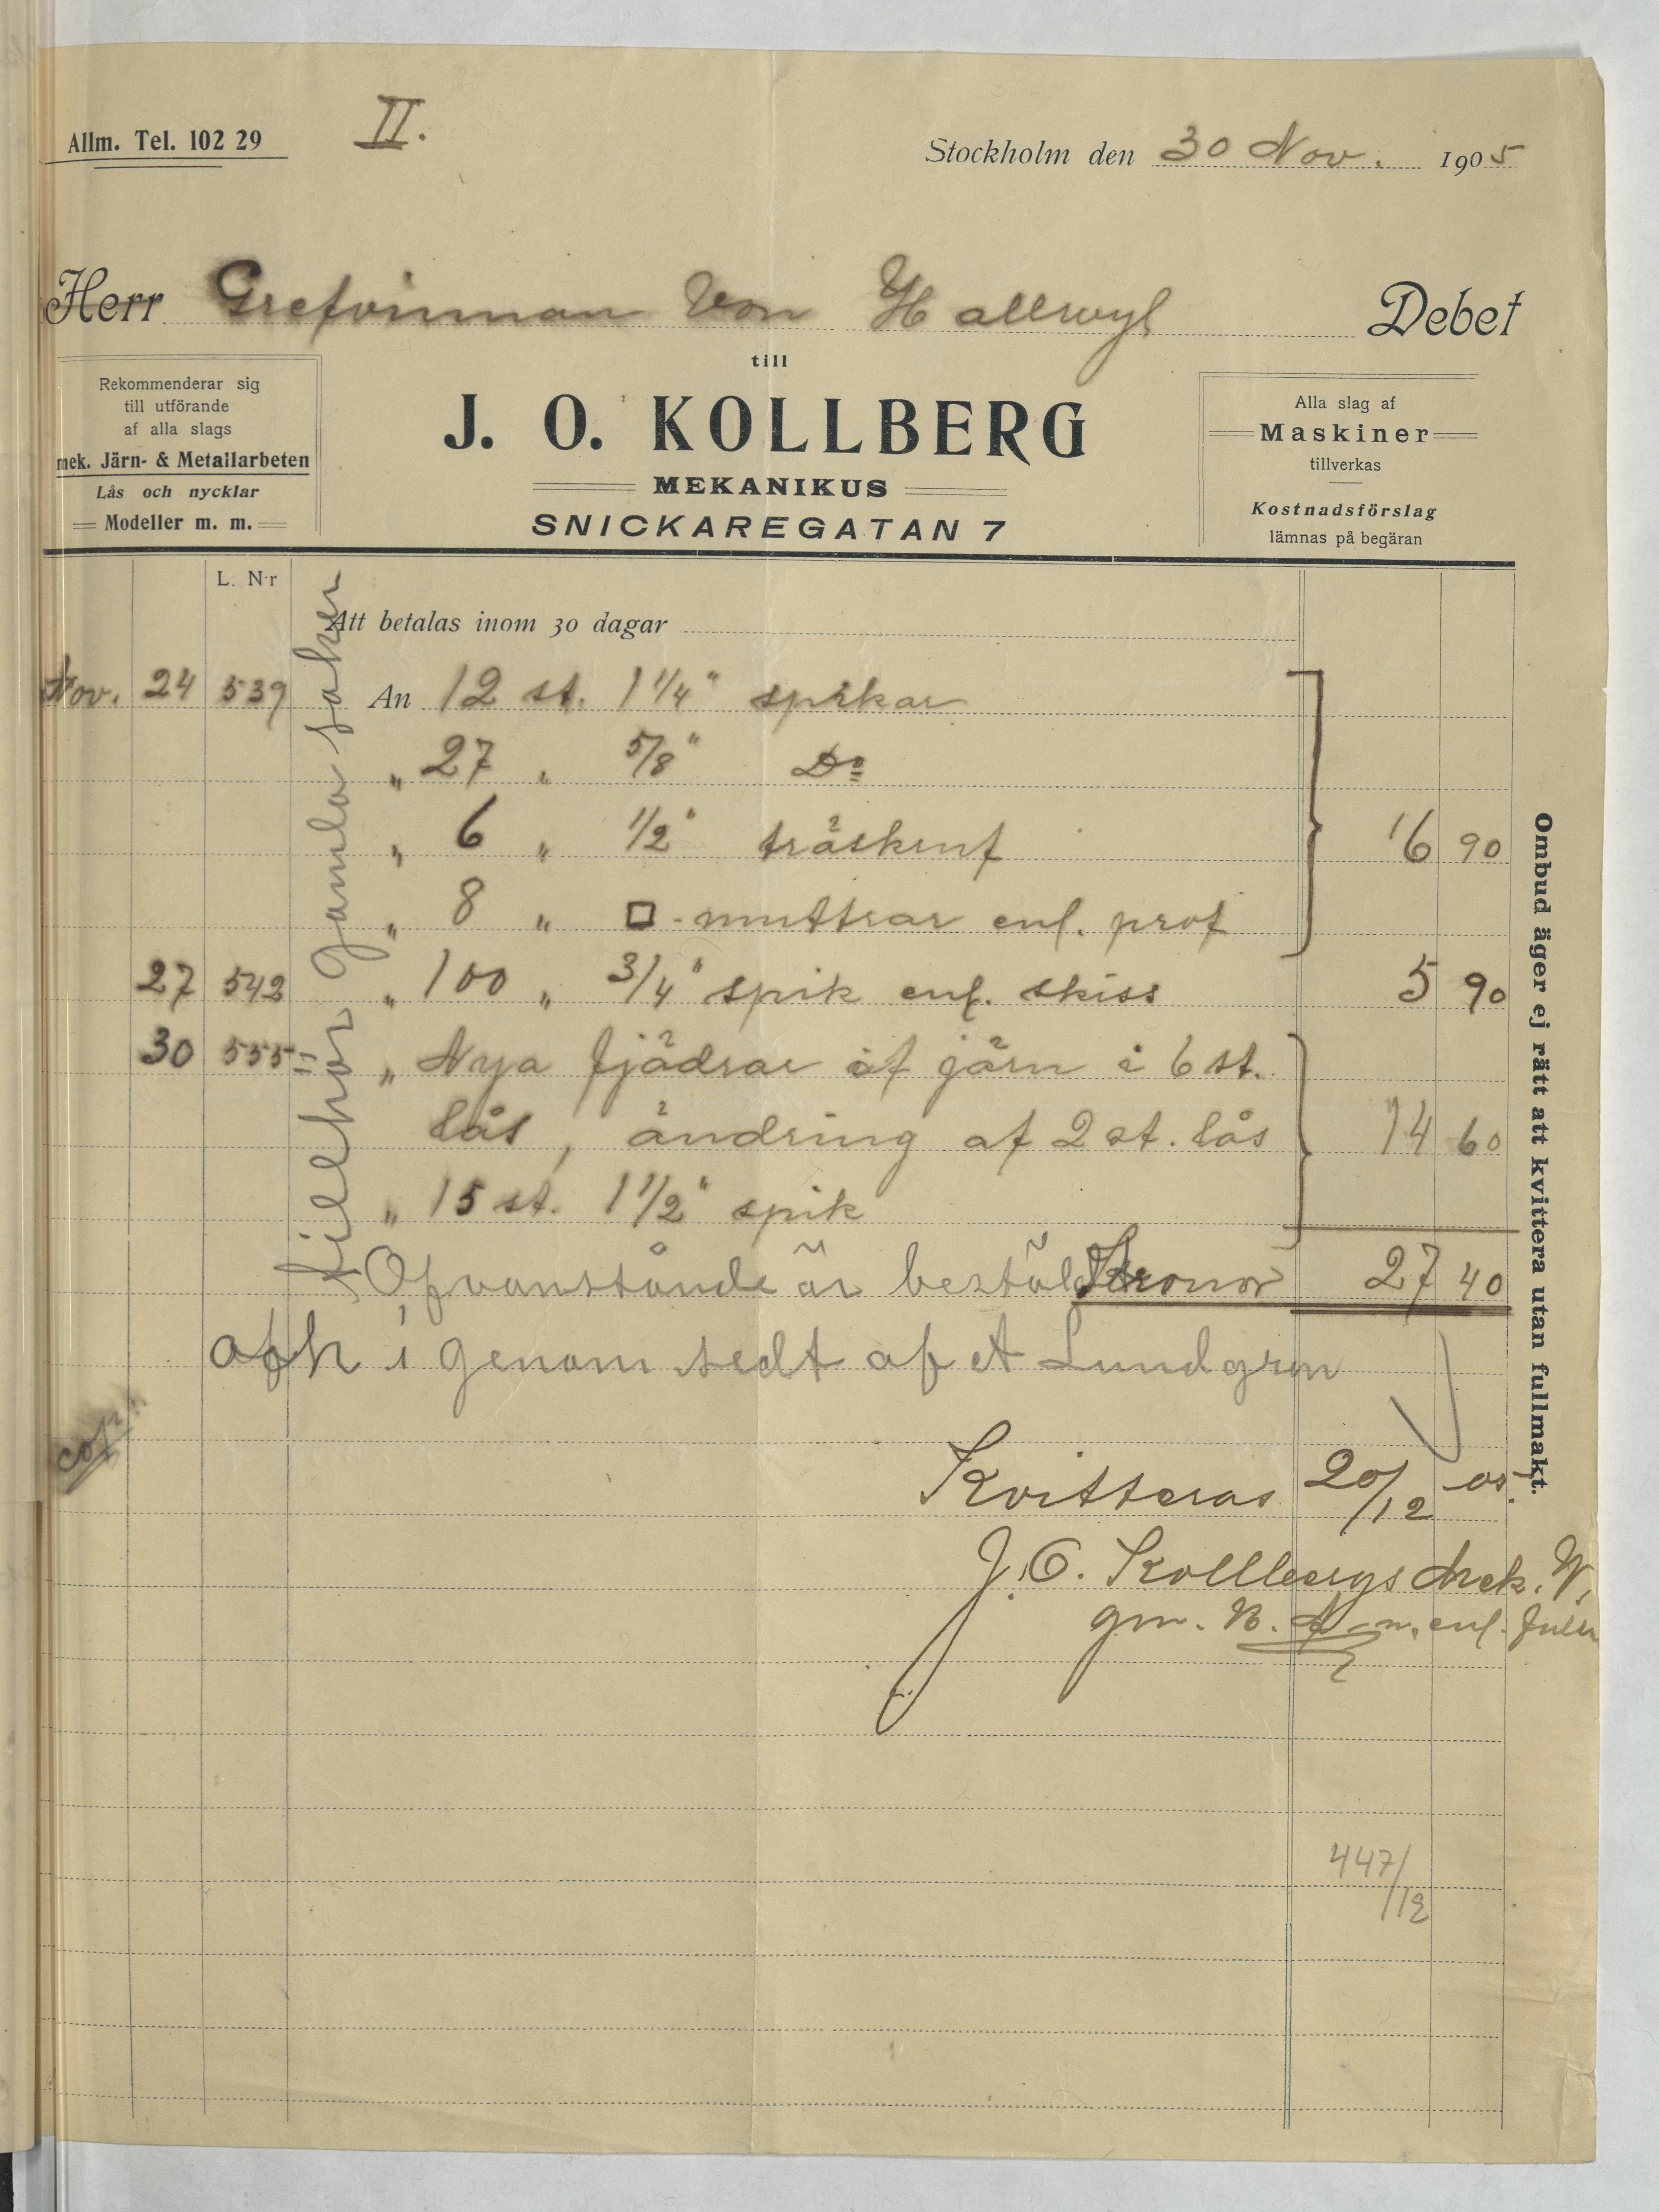 Allm. Tel. 102 29
II.
Stockholm den 30 Nov. 1905
Herr Grefvinnan Von Hallwyl Debet
till
Rekommenderar sig
till utförande
af alla slags
mek. Järn- & Metallarbeten
Lås och nycklar
Modeller m. m.
J. O. KOLLBERG
MEKANIKUS
SNICKAREGATAN 7
Alla slag af
Maskiner
tillverkas
Kostnadsförslag
lämnas på begäran
L. Nr
Att betalas inom 30 dagar
Nov. 24 539 An 12 st. 1 1/4" spikar
" 27 " 5/8" Do
" 6 " 1/2" träskruf 16 90
" 8 " □-muttrar enl. prof
27 542 " 100 " 3/4" spik enl. skiss 5 90
30 555 " Nya fjädrar af järn i 6 st.
lås, ändring af 2 st. lås 14 60
" 15 st. 1 1/2" spik
Kronor 27 40
Ofvanstånde är bestäldt
och i genom sedt af A Lundgren
tillhör gamla saker
cop.
Kvitteras 20/12 05.
J. O. Kollbergs Mek. W.
gm. enl. fullm
447/12
Ombud äger ej rätt att kvittera utan fullmakt.